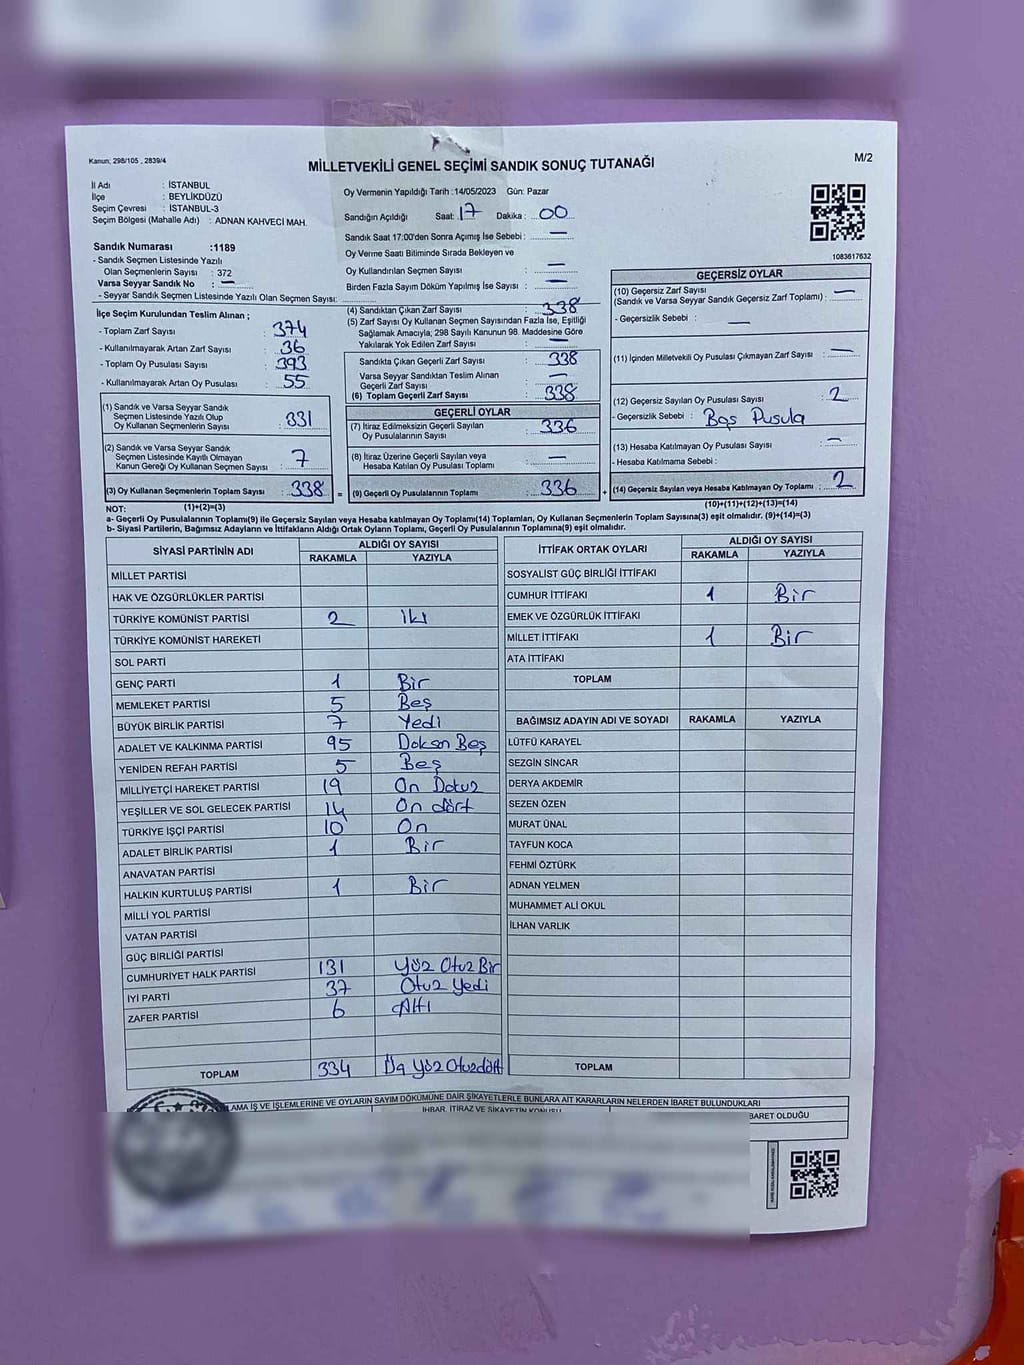 Kanun; 298/105 , 2839/4
MİLLETVEKİLİ GENEL SEÇİMİ SANDIK SONUÇ TUTANAĞI
M/2
İl Adı : İSTANBUL
İlçe : BEYLİKDÜZÜ
Seçim Çevresi : İSTANBUL-3
Seçim Bölgesi (Mahalle Adı) : ADNAN KAHVECİ MAH.
Sandık Numarası :1189
- Sandık Seçmen Listesinde Yazılı
Olan Seçmenlerin Sayısı : 372
Varsa Seyyar Sandık No : —
- Seyyar Sandık Seçmen Listesinde Yazılı Olan Seçmen Sayısı:
Oy Vermenin Yapıldığı Tarih :14/05/2023 Gün: Pazar
Sandığın Açıldığı Saat: 17 Dakika : 00
Sandık Saat 17:00'den Sonra Açımış İse Sebebi : —
Oy Verme Saati Bitiminde Sırada Bekleyen ve
Oy Kullandırılan Seçmen Sayısı : —
Birden Fazla Sayım Döküm Yapılmış İse Sayısı : —
1083617632
İlçe Seçim Kurulundan Teslim Alınan ;
- Toplam Zarf Sayısı : 374
- Kullanılmayarak Artan Zarf Sayısı : 36
- Toplam Oy Pusulası Sayısı : 393
- Kullanılmayarak Artan Oy Pusulası : 55
(1) Sandık ve Varsa Seyyar Sandık
Seçmen Listesinde Yazılı Olup
Oy Kullanan Seçmenlerin Sayısı : 331
(2) Sandık ve Varsa Seyyar Sandık
Seçmen Listesinde Kayıtlı Olmayan
Kanun Gereği Oy Kullanan Seçmen Sayısı : 7
(3) Oy Kullanan Seçmenlerin Toplam Sayısı : 338
(4) Sandıktan Çıkan Zarf Sayısı : 338
(5) Zarf Sayısı Oy Kullanan Seçmen Sayısından Fazla İse, Eşitliği
Sağlamak Amacıyla; 298 Sayılı Kanunun 98. Maddesine Göre
Yakılarak Yok Edilen Zarf Sayısı : —
Sandıkta Çıkan Geçerli Zarf Sayısı : 338
Varsa Seyyar Sandıktan Teslim Alınan
Geçerli Zarf Sayısı : —
(6) Toplam Geçerli Zarf Sayısı : 338
GEÇERLİ OYLAR
(7) İtiraz Edilmeksizin Geçerli Sayılan
Oy Pusulalarının Sayısı : 336
(8) İtiraz Üzerine Geçerli Sayılan veya
Hesaba Katılan Oy Pusulası Toplamı : —
= (9) Geçerli Oy Pusulalarının Toplamı : 336
GEÇERSİZ OYLAR
(10) Geçersiz Zarf Sayısı
(Sandık ve Varsa Seyyar Sandık Geçersiz Zarf Toplamı) : —
- Geçersizlik Sebebi : —
(11) İçinden Milletvekili Oy Pusulası Çıkmayan Zarf Sayısı : —
(12) Geçersiz Sayılan Oy Pusulası Sayısı : 2
- Geçersizlik Sebebi : Boş Pusula
(13) Hesaba Katılmayan Oy Pusulası Sayısı : —
- Hesaba Katılmama Sebebi :
+ (14) Geçersiz Sayılan veya Hesaba Katılmayan Oy Toplamı : 2
NOT: (1)+(2)=(3)
(10)+(11)+(12)+(13)=(14)
a- Geçerli Oy Pusulalarının Toplamı(9) ile Geçersiz Sayılan veya Hesaba katılmayan Oy Toplamı(14) Toplamları, Oy Kullanan Seçmenlerin Toplam Sayısına(3) eşit olmalıdır. (9)+(14)=(3)
b- Siyasi Partilerin, Bağımsız Adayların ve İttifakların Aldığı Ortak Oyların Toplamı, Geçerli Oy Pusulalarının Toplamına(9) eşit olmalıdır.
SİYASİ PARTİNİN ADI ALDIĞI OY SAYISI
RAKAMLA YAZIYLA
MİLLET PARTİSİ
HAK VE ÖZGÜRLÜKLER PARTİSİ
TÜRKİYE KOMÜNİST PARTİSİ 2 iki
TÜRKİYE KOMÜNİST HAREKETİ
SOL PARTİ
GENÇ PARTİ 1 Bir
MEMLEKET PARTİSİ 5 Beş
BÜYÜK BİRLİK PARTİSİ 7 Yedi
ADALET VE KALKINMA PARTİSİ 95 Doksan Beş
YENİDEN REFAH PARTİSİ 5 Beş
MİLLİYETÇİ HAREKET PARTİSİ 19 On Dokuz
YEŞİLLER VE SOL GELECEK PARTİSİ 14 On dört
TÜRKİYE İŞÇİ PARTİSİ 10 On
ADALET BİRLİK PARTİSİ 1 Bir
ANAVATAN PARTİSİ
HALKIN KURTULUŞ PARTİSİ 1 Bir
MİLLİ YOL PARTİSİ
VATAN PARTİSİ
GÜÇ BİRLİĞİ PARTİSİ
CUMHURİYET HALK PARTİSİ 131 Yüz Otuz Bir
İYİ PARTİ 37 Otuz Yedi
ZAFER PARTİSİ 6 Altı
TOPLAM 334 Üç Yüz Otuzdört
İTTİFAK ORTAK OYLARI ALDIĞI OY SAYISI
RAKAMLA YAZIYLA
SOSYALİST GÜÇ BİRLİĞİ İTTİFAKI
CUMHUR İTTİFAKI 1 Bir
EMEK VE ÖZGÜRLÜK İTTİFAKI
MİLLET İTTİFAKI 1 Bir
ATA İTTİFAKI
TOPLAM
BAĞIMSIZ ADAYIN ADI VE SOYADI RAKAMLA YAZIYLA
LÜTFÜ KARAYEL
SEZGİN SİNCAR
DERYA AKDEMİR
SEZEN ÖZEN
MURAT ÜNAL
TAYFUN KOCA
FEHMİ ÖZTÜRK
ADNAN YELMEN
MUHAMMET ALİ OKUL
İLHAN VARLIK
TOPLAM
LAMA İŞ VE İŞLEMLERİNE VE OYLARIN SAYIM DÖKÜMÜNE DAİR ŞİKAYETLERLE BUNLARA AİT KARARLARIN NELERDEN İBARET BULUNDUKLARI
İHBAR, İTİRAZ VE ŞİKAYETİN KONUSU
BARET OLDUĞU